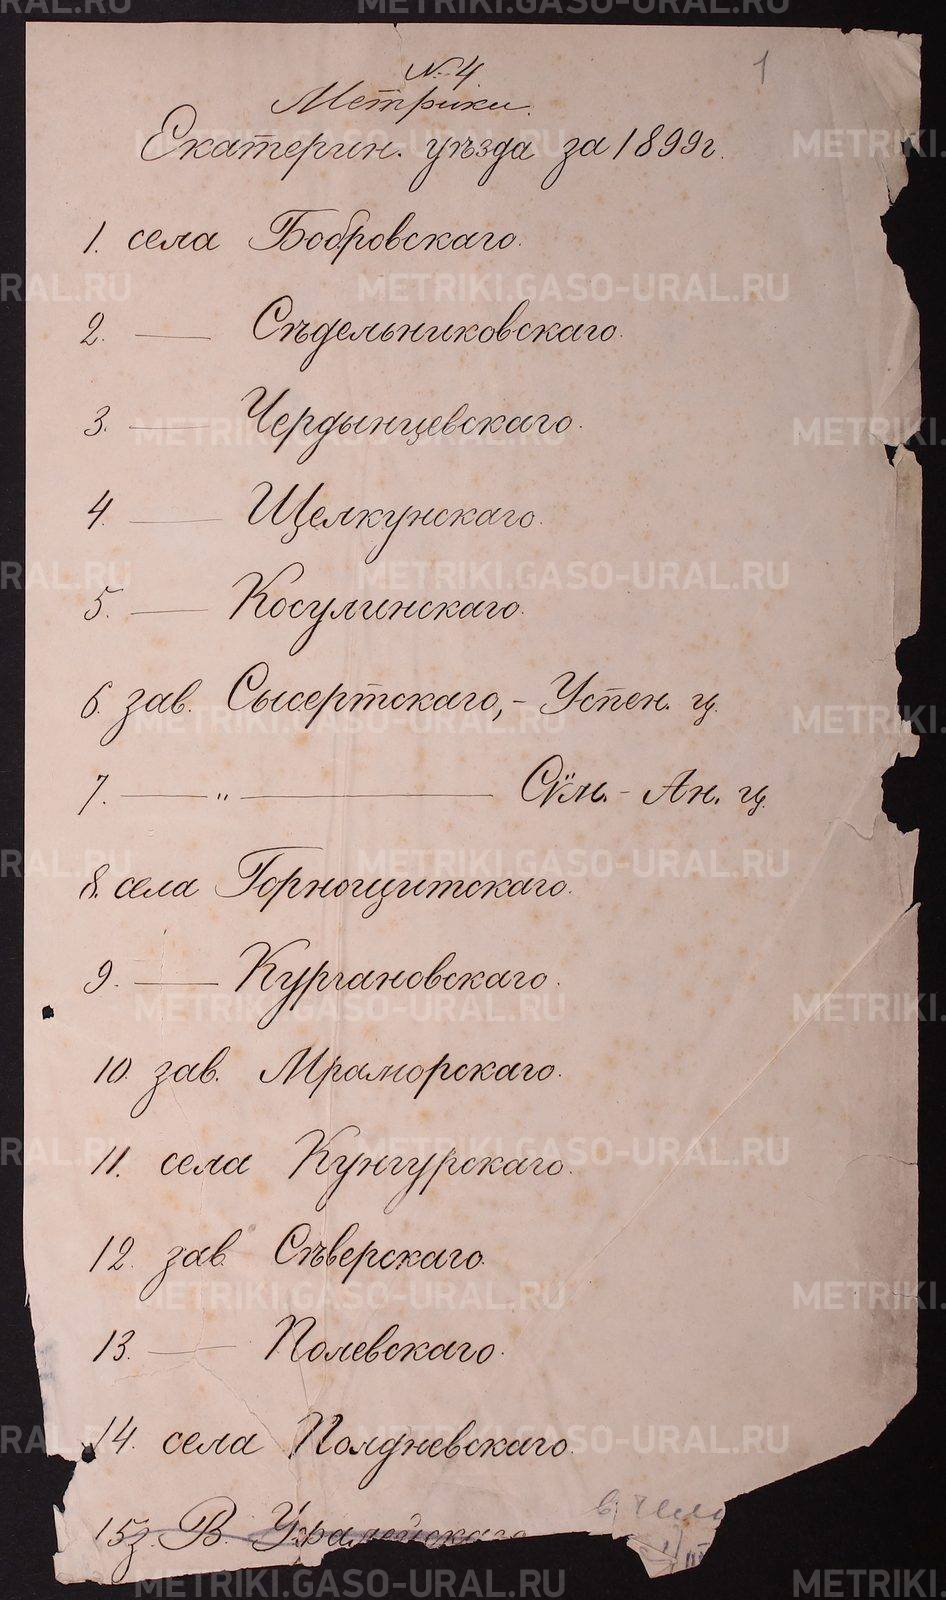 1
№ 4
Метрики.
Екатерин. уѣзда за 1899 г.
1. села Бобровскаго.
2. — Сѣдельниковскаго.
3. — Чердынцевскаго.
4. — Щелкунскаго.
5. — Косулинскаго.
6. зав. Сысертскаго, - Успен. ц.
7. — „ — Сѵм. - Ан. ц.
8. села Горнощитскаго.
9. — Кургановскаго.
10. зав. Мраморскаго.
11. села Кунгурскаго.
12. зав. Сѣверскаго.
13. — Полевскаго.
14. села Полдневскаго.
15 з. В. Уфалейскаго
METRIKI.GASO-URAL.RU